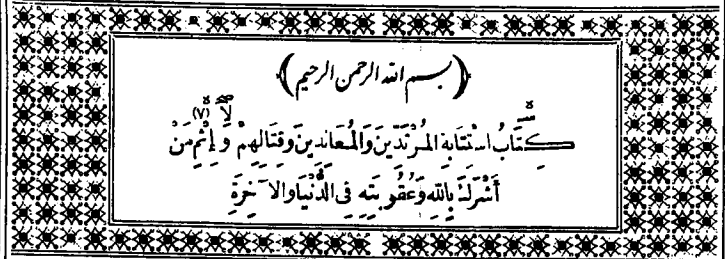 (بسم الله الرحمن الرحيم)
كِتَابُ اسْتِتَابَةِ المُرْتَدِّينَ وَالمُعَانِدِينَ وَقِتَالِهِمْ (٧) وَإِثْمِ مَنْ
أَشْرَكَ بِاللهِ وَعُقُوبَتِهِ فِى الدُّنْيَا وَالآخِرَةِ